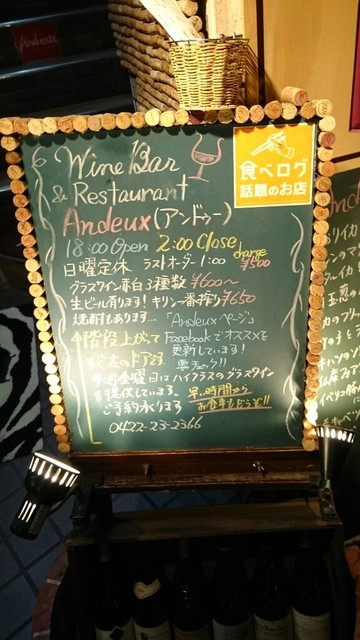 Andeux
Wine Bar
& Restaurant
食べログ
話題のお店
Andeux(アンドゥー)
18:00 Open 2:00 Close
日曜定休 ラストオーダー1:00
charge ¥500
グラスワイン赤白3種類 ¥600〜
生ビール有ります! キリン一番搾り¥650
焼酎もあります…
「Andeuxページ」
Facebookでオススメを
更新しています!
要チェック!!
階段上がって
左のドアです
毎週金曜日はハイクラスのグラスワイン
を提供しています。
早い時間から
お食事もどうぞ!!
ご予約承ります
0422-23-2366